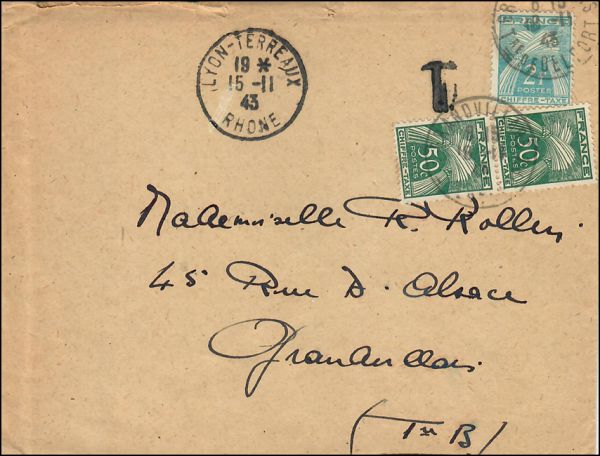 LYON-TERREAUX
19 *
15 -11
43
RHONE
T
FRANCE
2F
POSTES
CHIFFRE-TAXE
50c
POSTES
CHIFFRE-TAXE
FRANCE
50c
POSTES
CHIFFRE-TAXE
FRANCE
Mademoiselle R. Rollin
45 Rue D. Alsace
(Tre B)